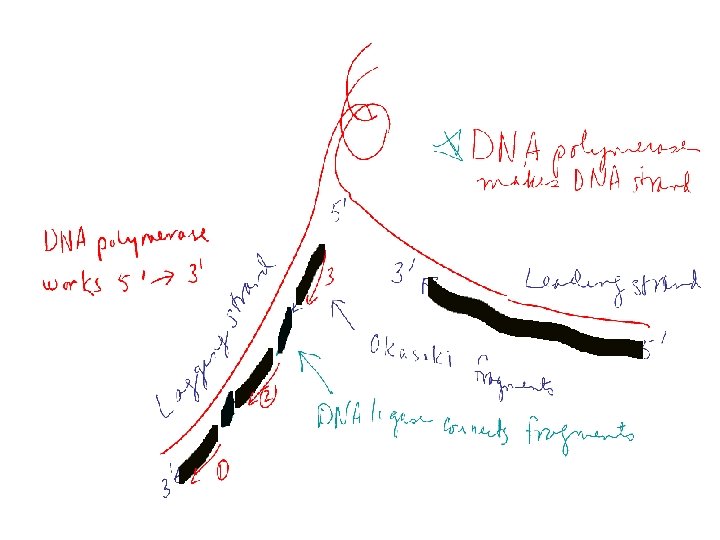 DNA polymerase
makes DNA strand
5'
DNA polymerase
works 5' → 3'
Lagging strand
3
3'
Leading strand
5'
Okasaki fragments
DNA ligase connects fragments
2
1
3'